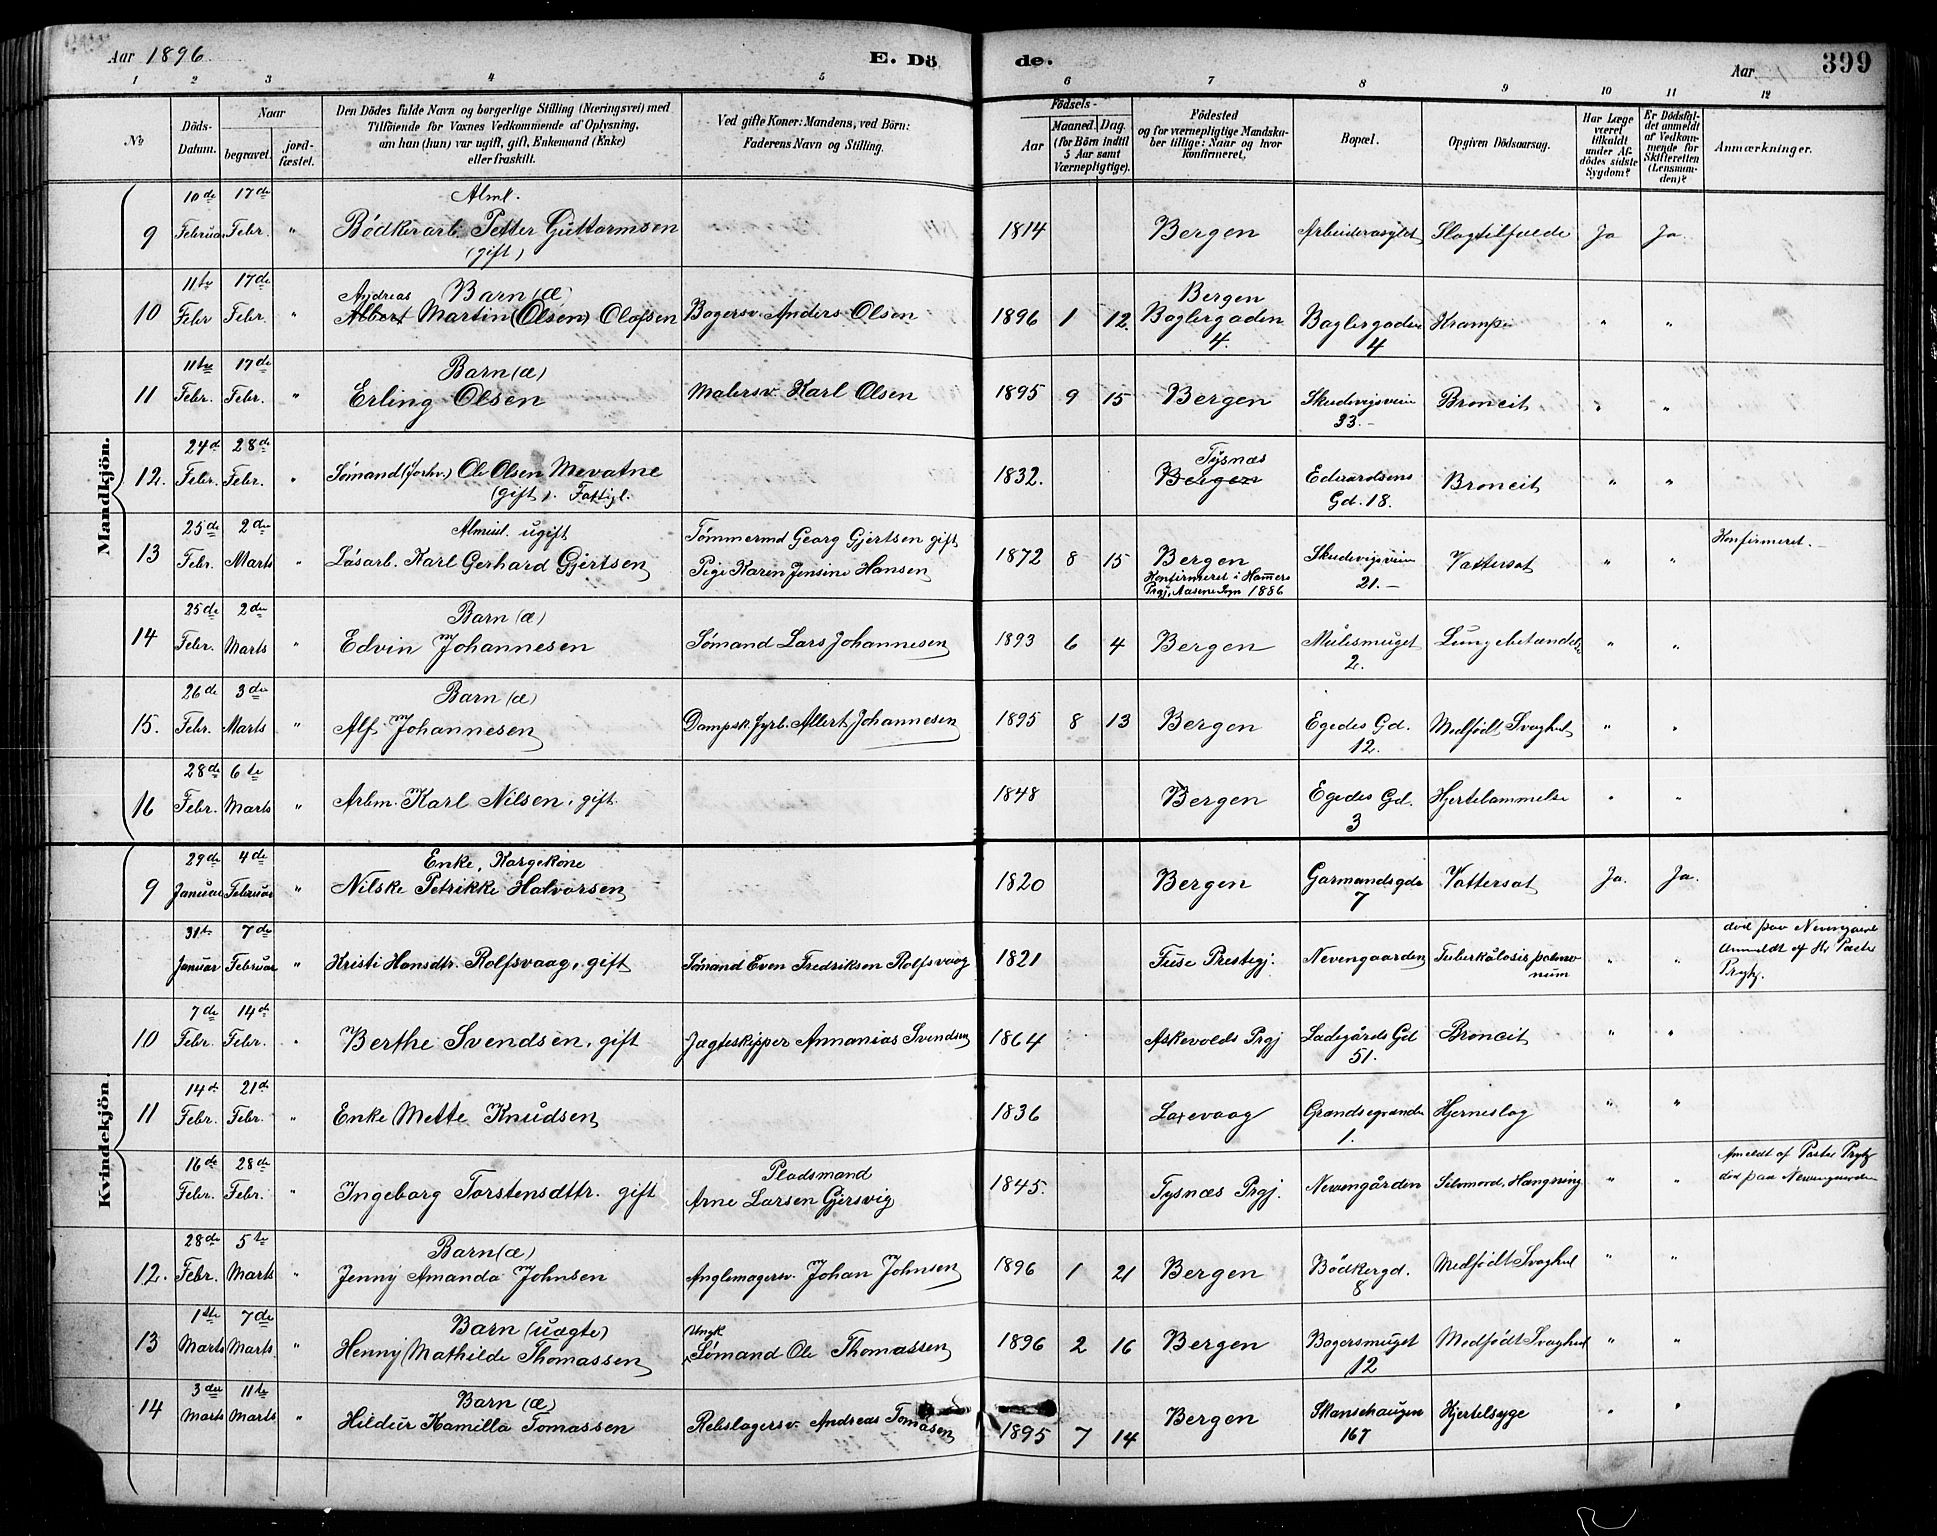 Aar 1896
E. Dö
de.
Aar
399
1 2 3 4 5 6 7 8 9 10 11 12
No
Döds-
Datum.
Naar
begravet.
jord-
fæstet.
Den Dödes fulde Navn og borgerlige Stilling (Næringsvei) med
Tilföiende for Voxnes Vedkommende af Oplysning,
om han (hun) var ugift, gift, Enkemand (Enke)
eller fraskilt.
Ved gifte Koner: Mandens, ved Börn:
Faderens Navn og Stilling.
Födsels-
Aar
Maaned. Dag.
(for Börn indtil
5 Aar samt
Værnepligtige).
Födested
og for værnepligtige Mandska-
ber tillige: Naar og hvor
konfirmeret.
Bopæl.
Opgiven Dödsaarsag.
Har Læge
været
tilkaldt
under Af-
dödes sidste
Sygdom?
Er Dödsfal-
det anmeldt
af Vedkom-
mende for
Skifteretten
(Lensman-
den)?
Anmærkninger.
Mandkjön.
10de 17de Alml.
9 Februar Febr. " Bødkerarb. Petter Guttormsen 1814 Bergen Arbeiderasylet Slagtilfælde Ja Ja
(gift)
11te 17de Andreas Barn (Æ) Bergen
10 Febr Febr. " Albert Martin (Olsen) Olafsen Bagersv. Anders Olsen 1896 1 12. Baglergaden Baglergaden Krampe " "
4. 4
11te 17de Barn (æ)
11 Febr. Febr. " Erling Olsen Malersv. Karl Olsen 1895 9 15 Bergen Skudevigsveien Broncit " "
33.-
24de 28de Tysnæs
12. Febr. Febr. " Sømand (forhv.) Ole Olsen Mevatne 1832. Bergen Edvardsens Broncit " "
(gift). Fattigl. Gd. 18.
25de 2den Almiul. ugift Tømmermd Georg Gjertsen gift Konfirmeret.-
13 Febr. Marts " Løsarb. Karl Gerhard Gjertsen Pige Karen Jensine Hansen 1872 8 15 Bergen Skudevigsveien Vattersot " "
Konfirmeret i Hammers 21.-
Prgj, Aasene Sogn 1886
25de 2den Barn (æ)
14 Febr. Marts " Edvin Johannesen Sømand Lars Johannesen 1893 6 4 Bergen Mulesmuget Lungebetændelse " "
2.
26de 3die Barn (æ)
15. Febr. Marts " Alf Johannesen Dampsk. fyrb. Albert Johannesen 1895 8 13 Bergen Egedes Gd. Medfødt Svaghed " "
12.
28de 6te
16 Febr. Marts " Arbm. Karl Nilsen, gift. 1848 Bergen Egedes Gd. Hjertelammelse " "
3
Kvindekjön.
29de 4de Enke, Kurgekone
9 Januar Februar " Nilske Petrikke Halvorsen 1820 Bergen Garmandsgdr Vattersot Ja. Ja.
7
31te 7de død paa Nevengaarden
Januar Februar " Kristi Hansdtr. Rolfsvaag, gift Sømand Even Fredriksen Rolfsvaag 1821 Fuse Prestegj. Nevengaarden Tuberkulosis pulmo- " " Anmeldt af Hr Pastor
num Prytz.
7de 14de
10 Febr. Febr. " Berthe Svendsen, gift Jægteskipper Annanias Svendsen 1864 Askevolds Prgj Ladegårds Gd Broncit " "
51.
14de 21de
11 Febr. Febr. " Enke Mette Knudsen 1836 Laxevaag Grændsegrænden Hjerneslag " "
1.
16de 28de Pladsmand Anmeldt af Pastor Prytz
Febr. Febr. " Ingeborg Torstensdttr. gift Arne Larsen Gjersvig 1845. Tysnæs Prgj. Nevengården Selvmord, Hængning " " død paa Nevengaarden
28de 5te Barn (æ)
12. Febr. Marts " Jenny Amanda Johnsen Anglemagersv. Johan Johnsen 1896 1 21 Bergen Bödkergd. Medfødt Svaghed " "
8
1ste 7de Barn (uægte) Ungk
13 Marts Marts " Henny Mathilde Thomassen Sømand Ole Thomassen 1896 2 16 Bergen Bagersmuget Medfødt Svaghed " "
12
3die 11te Barn (Æ)
14 Marts Marts " Hildur Kamilla Tomassen Rebslagersv. Andreas Tomasen 1895 7 14 Bergen Skansehaugen Hjertesyge " "
167